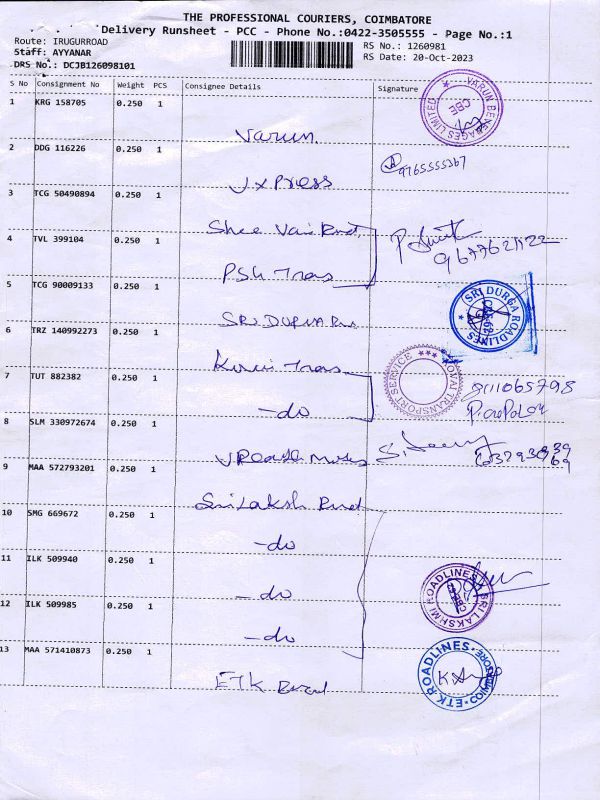 THE PROFESSIONAL COURIERS, COIMBATORE
Delivery Runsheet - PCC - Phone No.:0422-3505555 - Page No.:1
Route: IRUGURROAD
RS No.: 1260981
Staff: AYYANAR
RS Date: 20-Oct-2023
DRS No.: DCJB126098101
S No Consignment No Weight PCS Consignee Details Signature
1 KRG 158705 0.250 1
VARUN BEVERAGES LIMITED
CBE
Varun
2 DDG 116226 0.250 1
9765555367
J.x Press
3 TCG 50490894 0.250 1
Shree Vari Road
4 TVL 399104 0.250 1
9677621122
PSK Trans
5 TCG 90009133 0.250 1
SRI DURGA ROADLINES
SRI DURGA
6 TRZ 140992273 0.250 1
TRANSPORT SERVICE
Trans
7 TUT 882382 0.250 1
8111065798
-do
8 SLM 330972674 0.250 1
9 MAA 572793201 0.250 1
Sri Laksh Road
10 SMG 669672 0.250 1
-do
11 ILK 509940 0.250 1
SRI LAKSHMI ROADLINES
-do
12 ILK 509985 0.250 1
-do
13 MAA 571410873 0.250 1
ETK ROADLINES
COIMBATORE
ETK Road